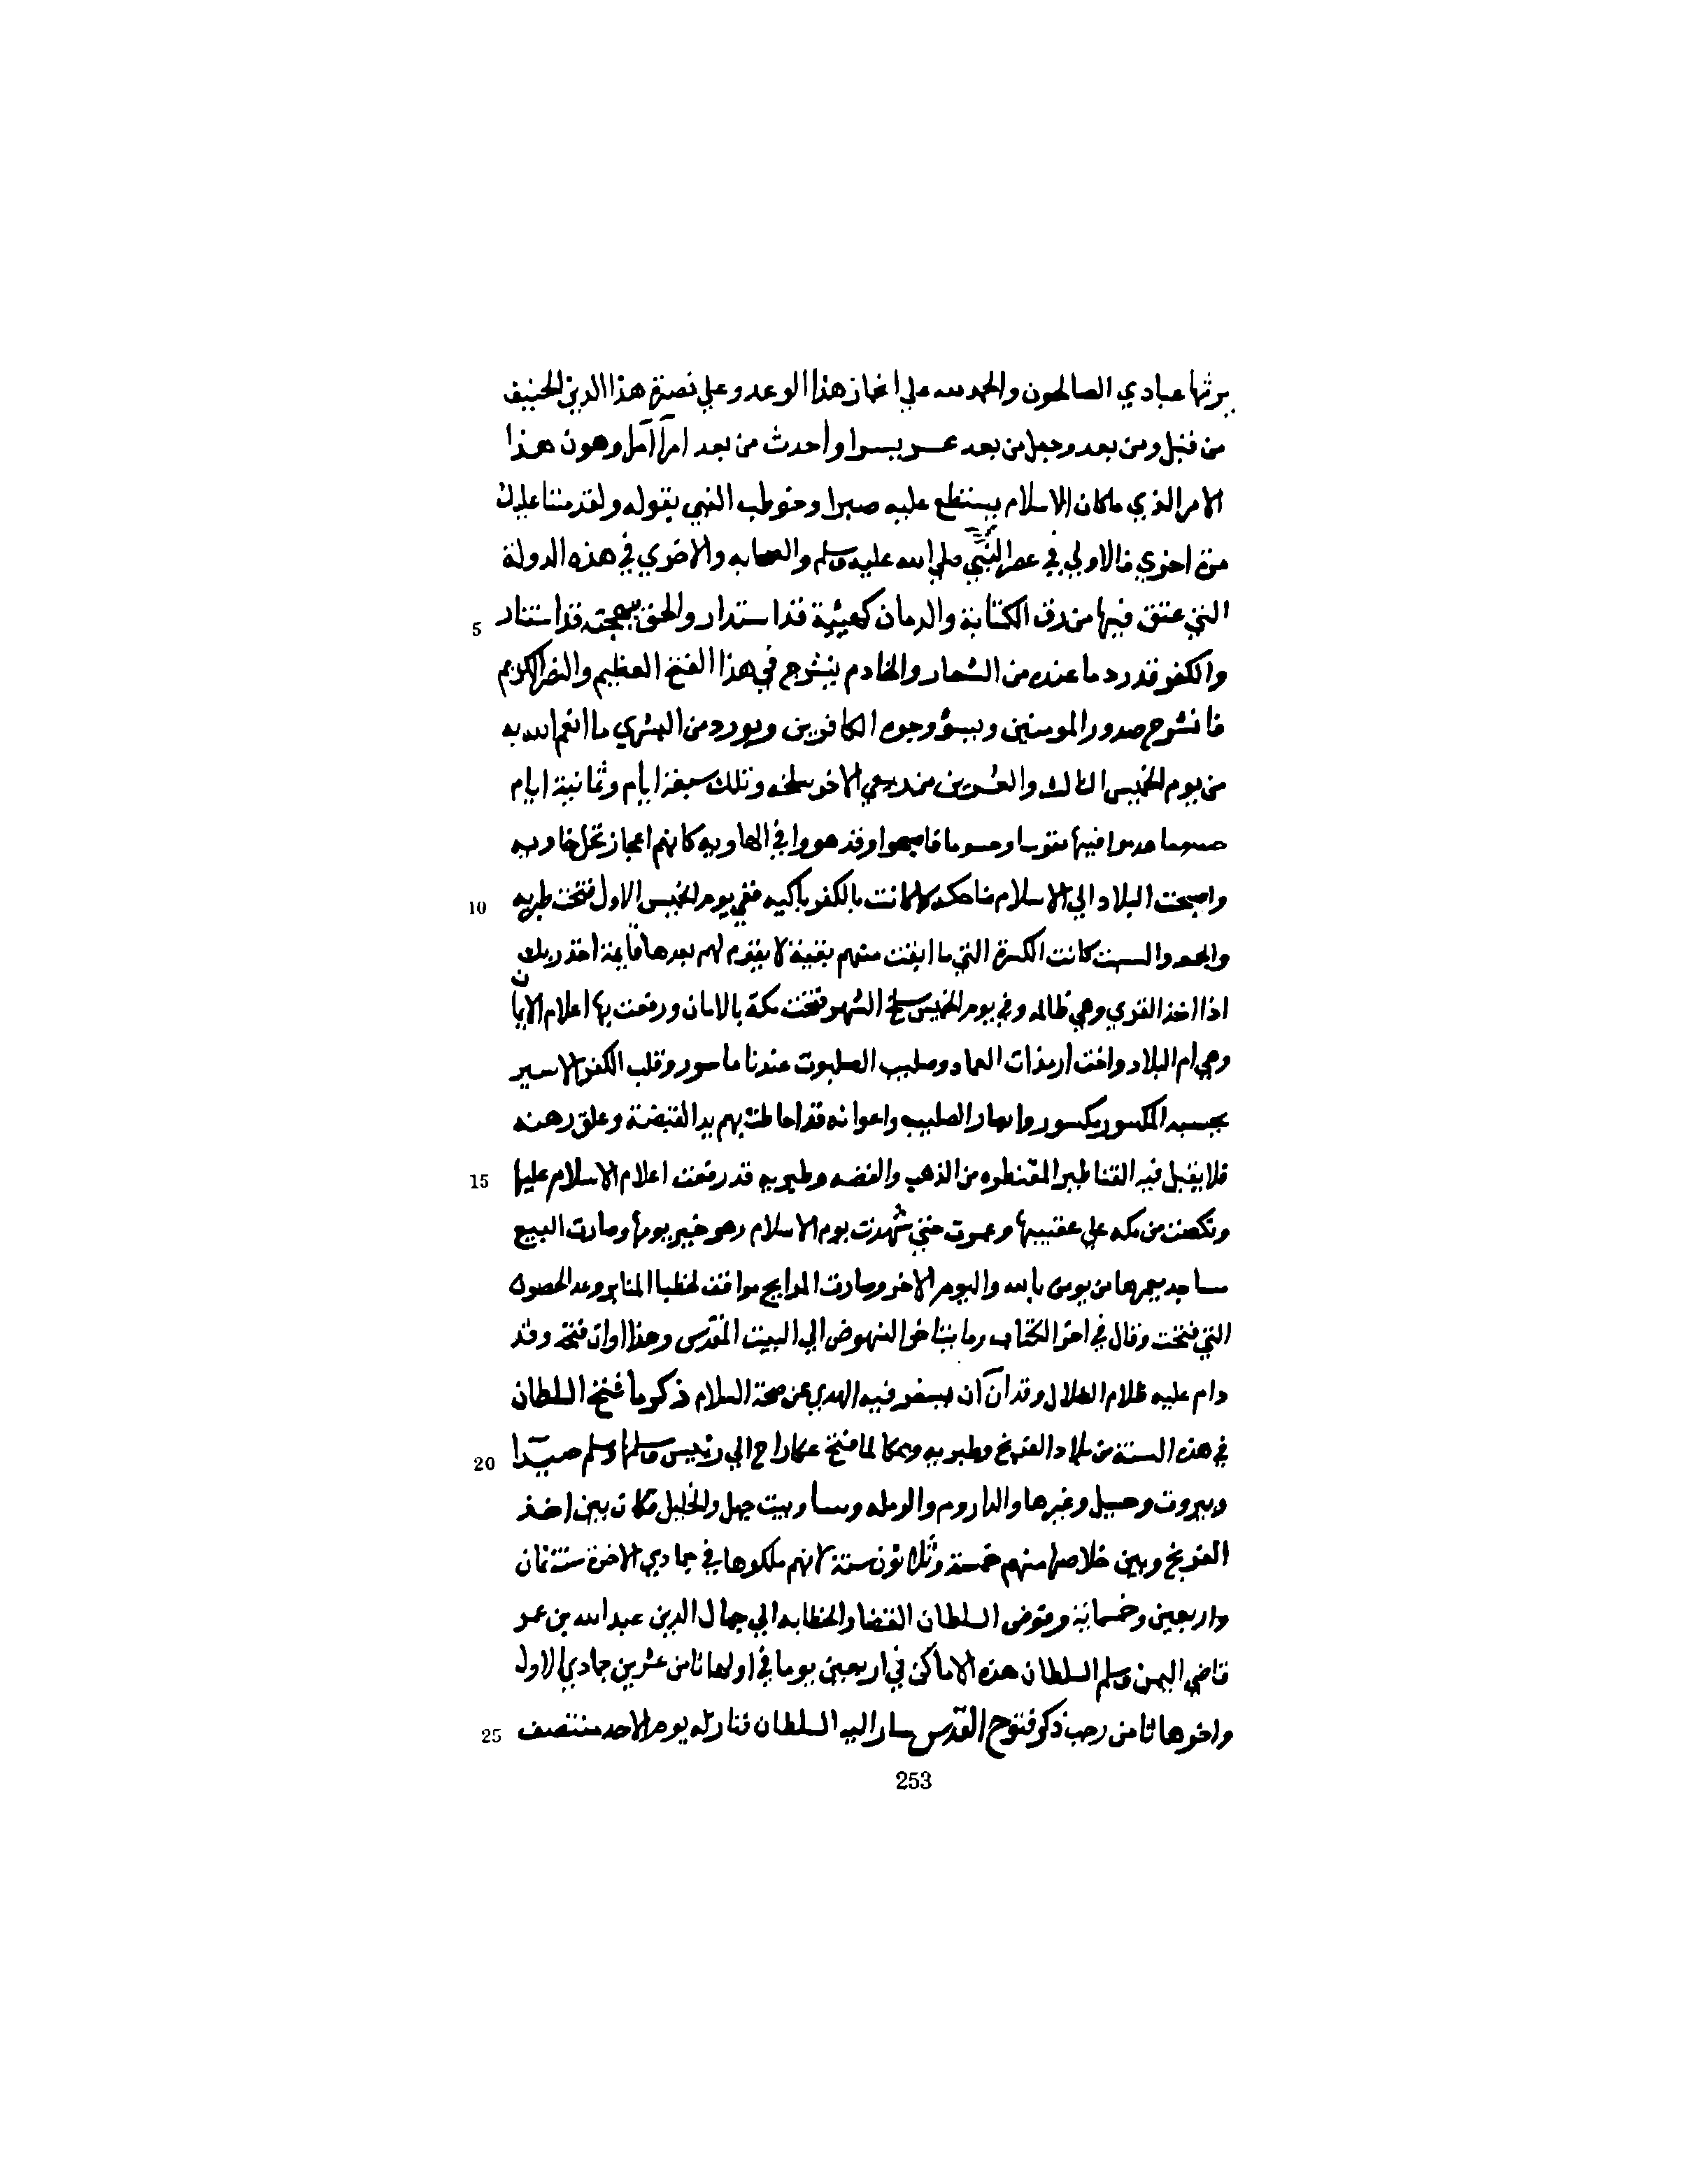 يرثها عبادي الصالحون والحمد لله علي انجاز هذا الوعد وعلي نصرة هذا الدين الحنيف
من قبل ومن بعد وجعل من بعد عسر يسرا وأحدث من بعد امرا آمرا وهون هذا
الامر الذي ماكان الاسلام يستطع عليه صبرا وخوطب النبي بقوله ولقد مننا عليك
مرة اخري فالاولي في عصر النبي صلي الله عليه وسلم والصحابه والاخري في هذه الدولة
التي عتق فيها من رق الكتابة والزمان كهيئية قد استدار والحق ببهجته قد استنار 5
والكفر قد رد ما عنده من الشعار والخادم يشرح في هذا الفتح العظيم والنصر الكريم
ما نشرح صدور المومنين ويسؤ وجوه الكافرين ويورد من البشري ما انعم الله به
من يوم الخميس الثالث والعشرين من ربيع الاخر سلخه وتلك سبعة ايأم وثمانية ايام
حسوما فاصبحوا وقد هووا في الهاويه كانهم اعجاز نخل خاويه
واصبحت البلاد الي الاسلام ضاحكه كما كانت بالكفر باكيه ففي يوم الخميس الاول فتحت طبريه 10
والجمعه والسبت كانت الكسرة التي ما ابقت منهم بقية لا يقوم لهم بعدها قايمة اخذ ربك
اذا اخذ القري وهي ظالمه وفي يوم الخميس سلخ الشهر فتحت عكة بالامان ورفعت بها اعلام الايمان
وهي ام البلاد واخت ارم ذات العماد وصليب الصلبوت عندنا ماسور وقلب الكفر الاسير
بجسده المكسور يكسور وانصار الصليب واعوانه قد احاطت بهم يد القبضة وعلق رهنه
فلا يقبل فيه القناطير المقنطره من الذهب والفضه وطبريه قد رفعت اعلام الاسلام عليها 15
ونكصت من عكه علي عقبيها وعمرت حتي شهدت يوم الاسلام وهو خير يومها وصارت البيع
مساجد يعمرها من يومن بالله واليوم الاخر وصارت المذابح مواقف لخطبا المنابر وعد الحصون
التي فتحت وقال في اخر الكتاب وما يتاخر النهوض الي البيت المقدس وهذا اوان فتحه وقد
دام عليه ظلام الضلال وقد آن ان يسفر فيه الهدي عن صحة السلام ذكر ما فتح السلطان
في هذه السنة من بلاد الفرنج وطبريه وعكا لما فتح عكا راح الي وسلم صيدا 20
وبيروت وجبيل وغيرها والداروم والرمله وبيت جبل والخليل فكان بين اخذ
الفرنج وبين خلاصها منهم خمسة وثلاثون سنة لانهم ملكوها في جمادي الاخرة سنة ثمان
واربعين وخمسمائة وفوض السلطان القضا والخطابه الي جمال الدين عبد الله بن عمر
قاضي اليمن وسلم السلطان هذه الاماكن في اربعين يوما في اولها ثامن عشرين جمادي الاول
واخرها ثامن رجب ذكر فتوح القدس سار اليه السلطان فنازله يوم الاحد منتصف 25
253